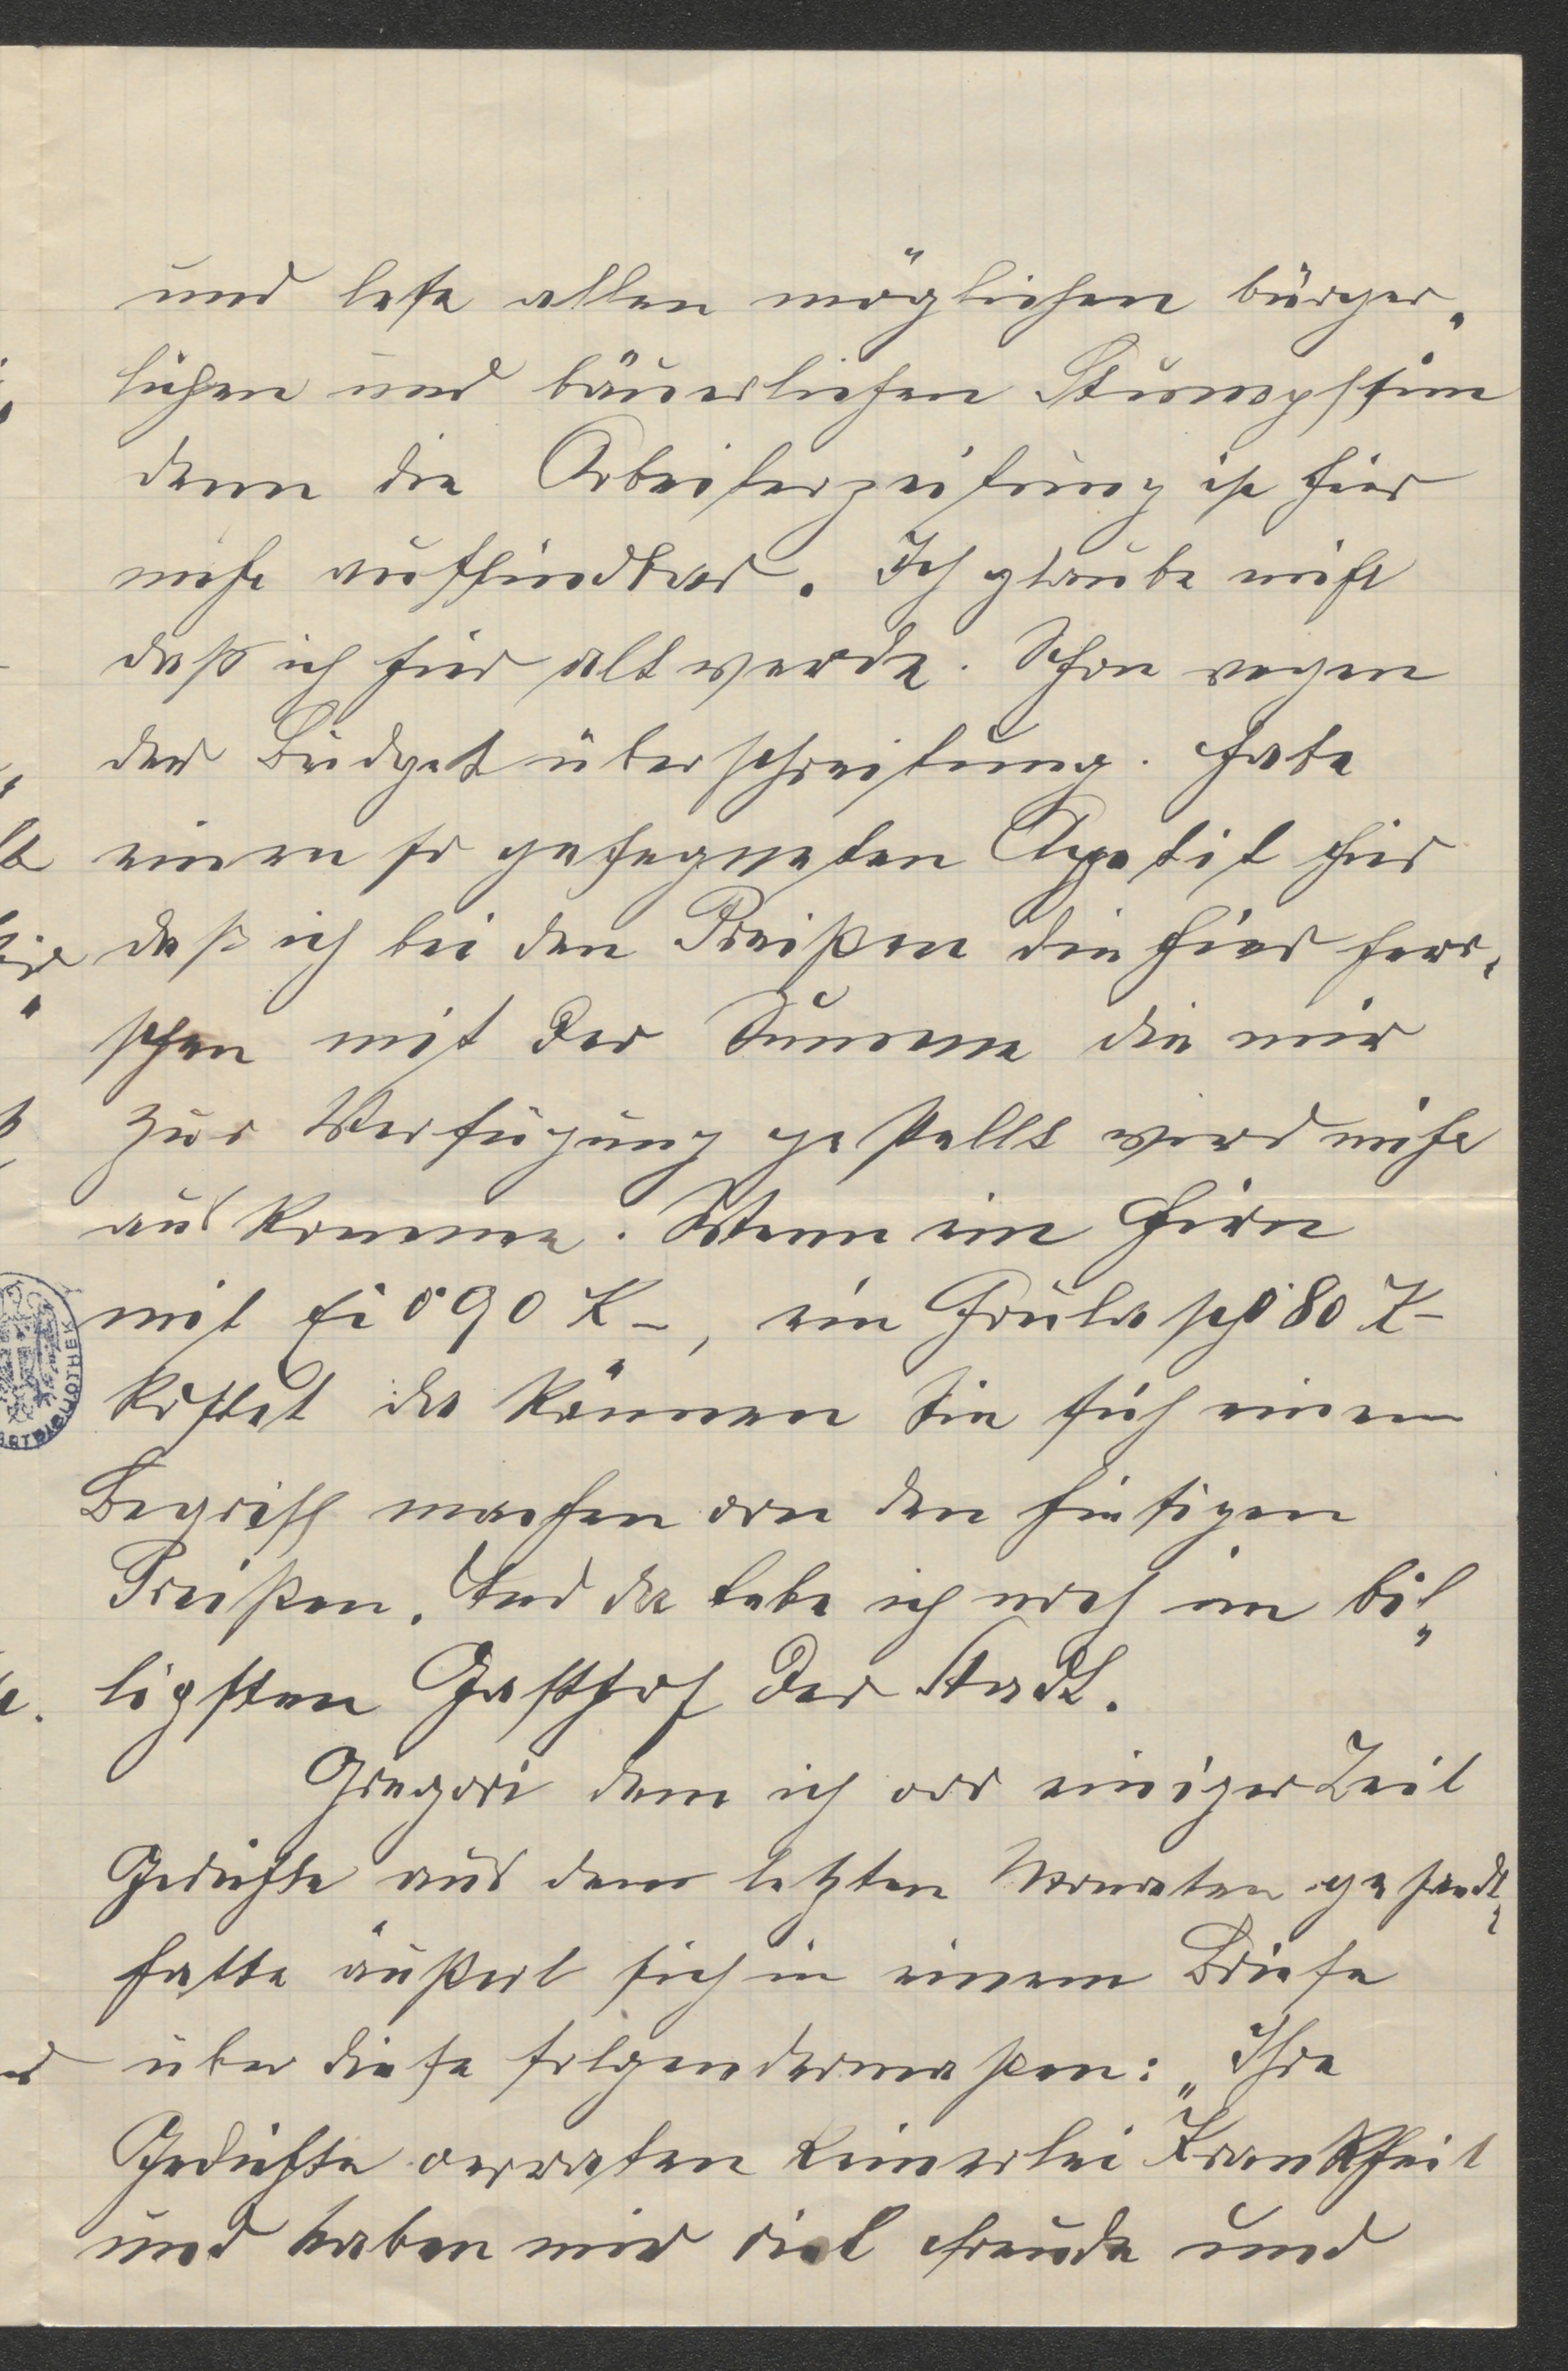 und lese allen möglichen bürger-
lichen und bäuerlichen Stumpfsinn
denn die Arbeiterzeitung ist hier
nicht auffindbar. Ich glaube nicht
daß ich hier alt werde. Schon wegen
der Budgetüberschreitung. Habe
einen so gesegneten Apetit hier
daß ich bei den Preißen die hier herr-
schen mit der Summe die mir
zur Verfügung gestellt wird nicht
auskomme. Wenn ein Hirn
mit Ei 890 K–, ein Gulasch 880 K–
kostet da können Sie sich einen
Begriff machen von den hiesigen
Preißen. Und da lebe ich noch im bil-
ligsten Gasthof der Stadt.
Gregori dem ich vor einiger Zeit
Gedichte aus dem letzten Monaten gesandt
hatte äußert sich in einem Briefe
über diese folgendermaßen: „Ihre
Gedichte verraten keinerlei Krankheit
und haben mir viel Freude und